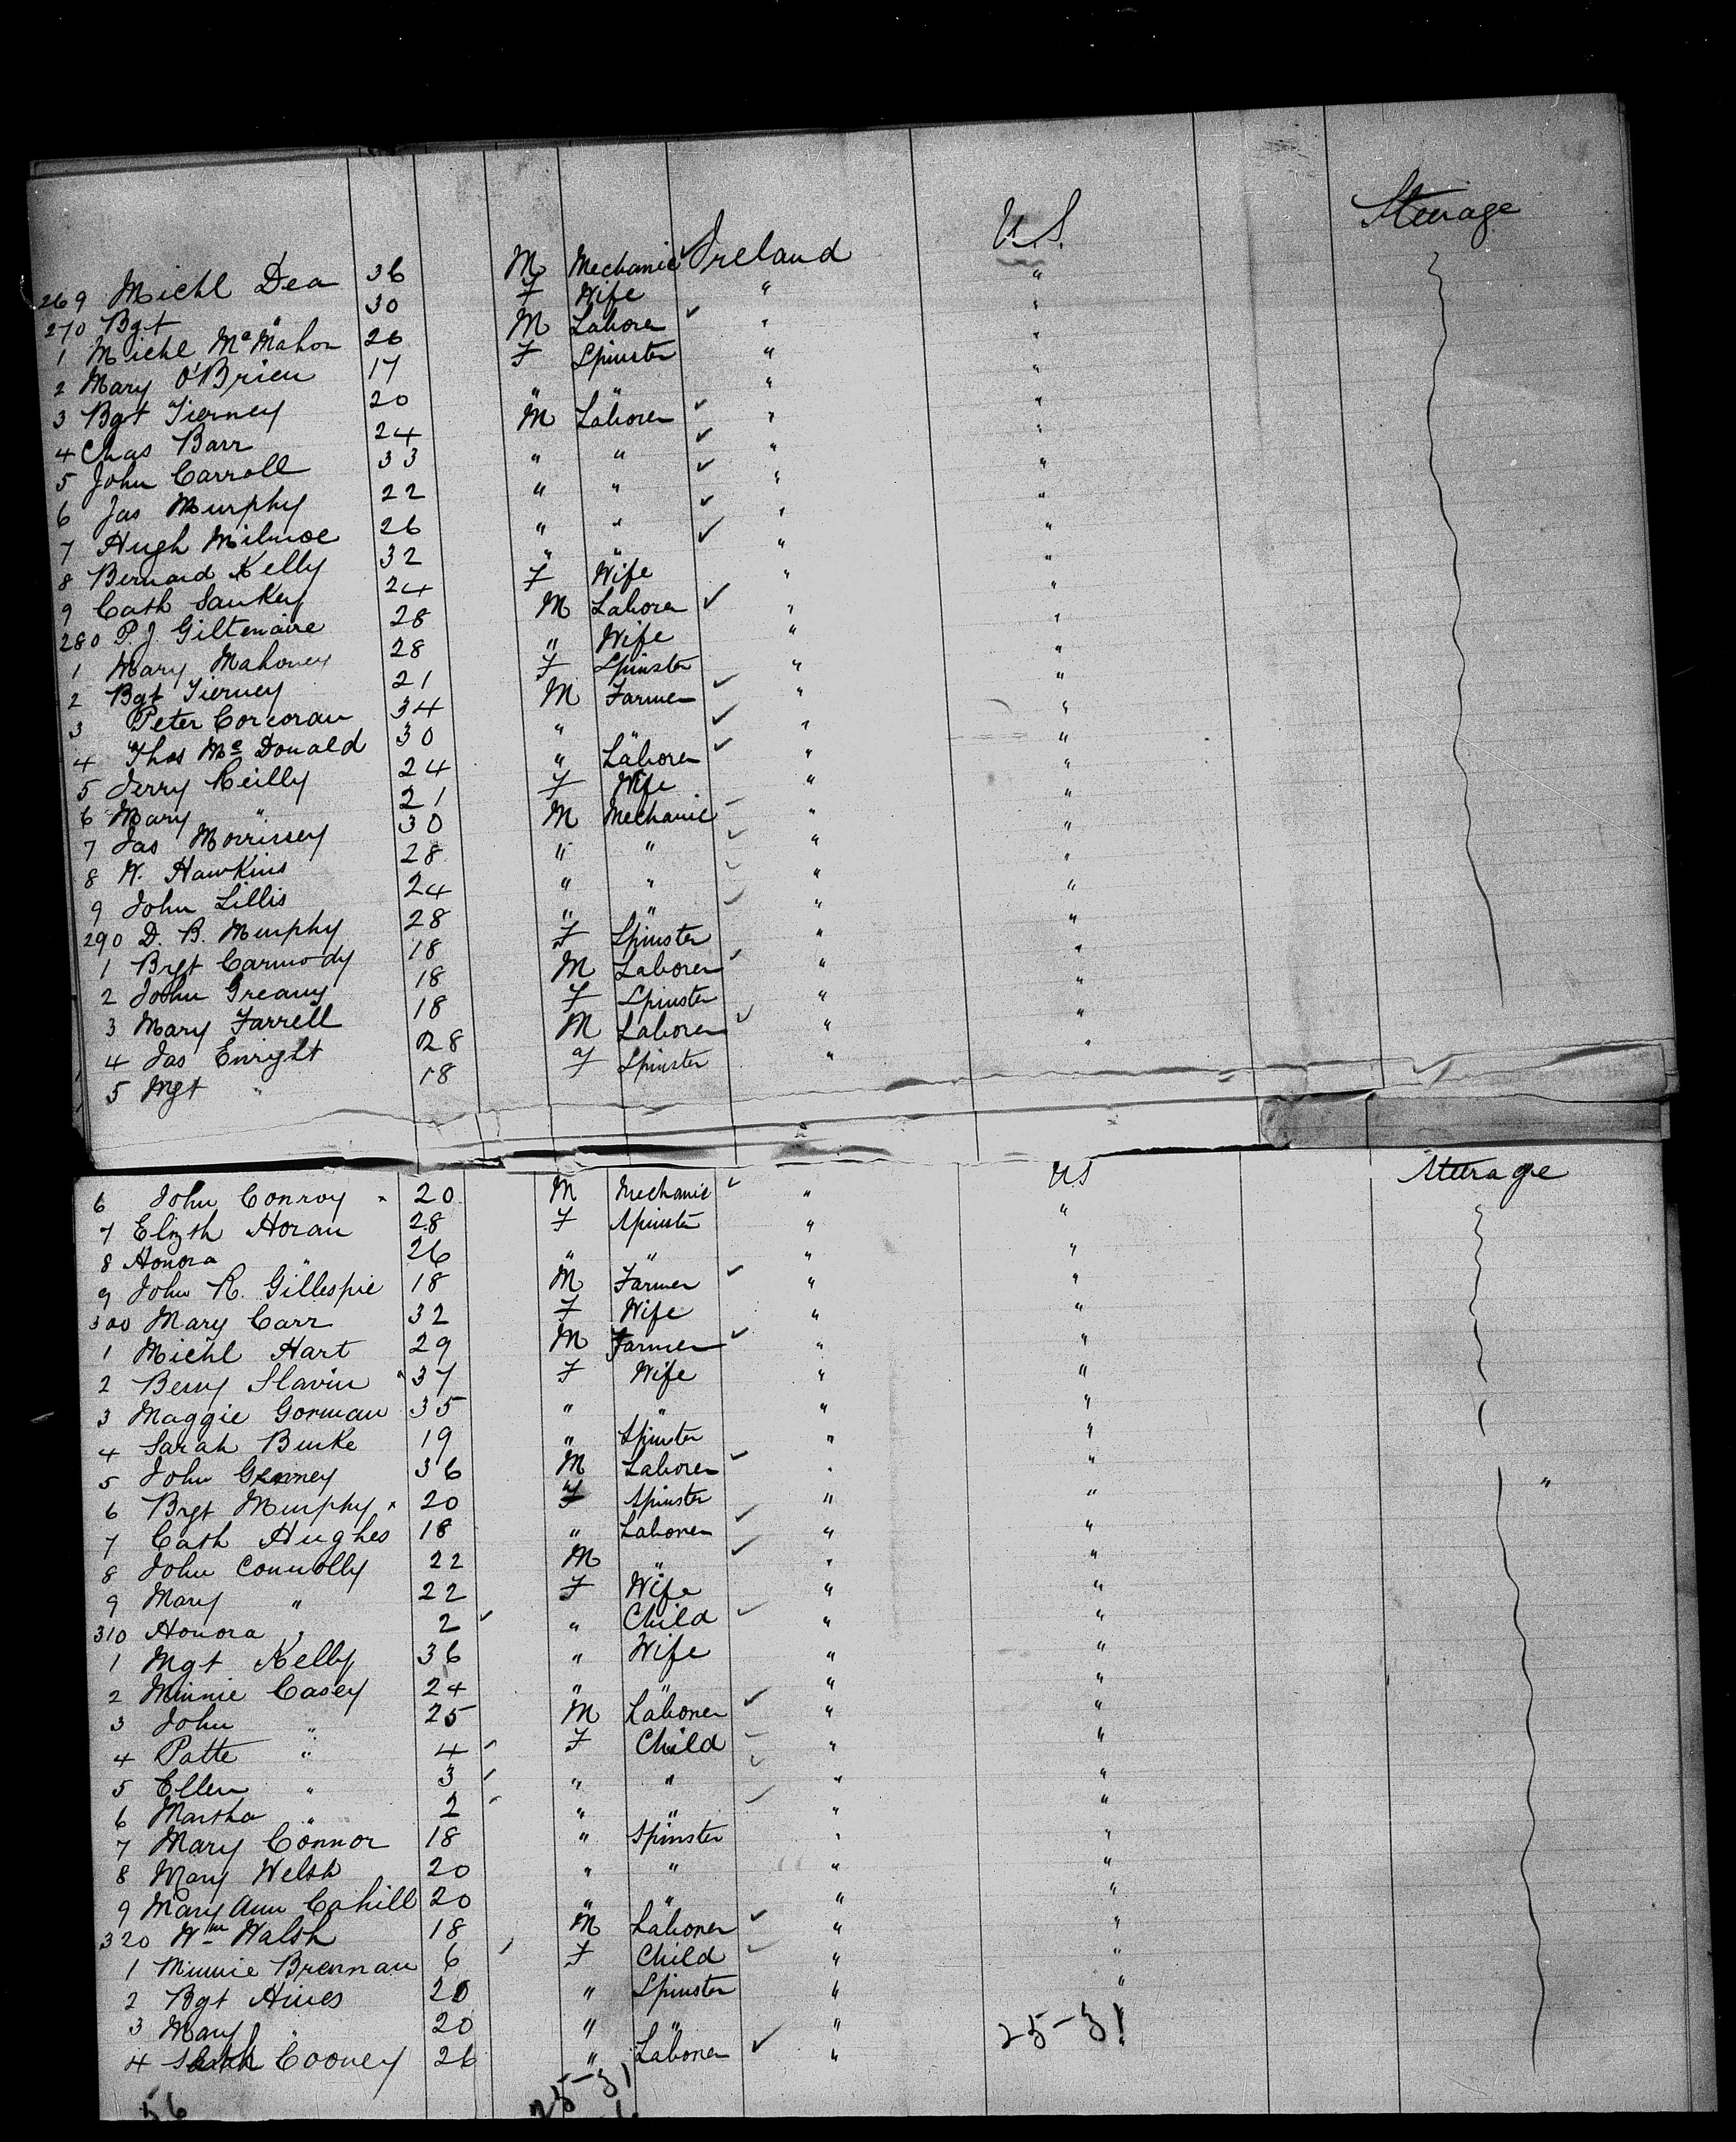 269 Michl Dea 36 M Mechanic ✓ Ireland U.S. Steerage
270 Bgt " 30 F Wife " "
1 Michl McMahon 26 M Laborer ✓ " "
2 Mary O'Brien 17 F Spinster " "
3 Bgt Tierney 20 " " " "
4 Chas Barr 24 M Laborer ✓ " "
5 John Carroll 33 " " ✓ " "
6 Jas Murphy 22 " " ✓ " "
7 Hugh Milmoe 26 " " ✓ " "
8 Bernard Kelly 32 " " ✓ " "
9 Cath Sankey 24 F Wife " "
280 P. J. Giltenaire 28 M Laborer ✓ " "
1 Mary Mahoney 28 " Wife " "
2 Bgt Tierney 21 F Spinster " "
3 Peter Corcoran 34 M Farmer ✓ " "
4 Thos McDonald 30 " " ✓ " "
5 Jerry Reilly 24 " Laborer ✓ " "
6 Mary " 21 F Wife " "
7 Jas Morrissey 30 M Mechanic ✓ " "
8 W. Hawkins 28 " " ✓ " "
9 John Lillis 24 " " ✓ " "
290 D. B. Murphy 28 " " ✓ " "
1 Brgt Carmody 18 F Spinster " "
2 John Greany 18 M Laborer ✓ " "
3 Mary Farrell 18 F Spinster " "
4 Jas Enright 28 M Laborer ✓ " "
5 Mgt " 18 F Spinster " "
6 John Conroy 20 M Mechanic ✓ " US Steerage
7 Elizth Horan 28 F Spinster " "
8 Honora " 26 " " " "
9 John R. Gillespie 18 M Farmer ✓ " "
300 Mary Carr 32 F Wife " "
1 Michl Hart 29 M Farmer ✓ " "
2 Bessy Slavin 37 F Wife " "
3 Maggie Gorman 35 " " " "
4 Sarah Burke 19 " Spinster " "
5 John Genney 36 M Laborer ✓ " " "
6 Brgt Murphy 20 F Spinster " "
7 Cath Hughes 18 " Laborer ✓ " "
8 John Connolly 22 M " ✓ " "
9 Mary " 22 F Wife " "
310 Honora " 2 ✓ " Child ✓ " "
1 Mgt Kelly 36 " Wife " "
2 Minnie Casey 24 " " " "
3 John " 25 M Laborer ✓ " "
4 Patte " 4 ✓ F Child ✓ " "
5 Ellen " 3 ✓ " " ✓ " "
6 Martha " 2 ✓ " " ✓ " "
7 Mary Connor 18 " Spinster " "
8 Mary Welsh 20 " " " "
9 Mary Ann Cahill 20 " " " "
320 Wm Walsh 18 M Laborer ✓ " "
1 Minnie Brennan 6 ✓ F Child ✓ " "
2 Bgt Hines 20 " Spinster " "
3 Mary " 20 " " " "
4 Cooney 26 " Laborer ✓ "
25-31
56 25-31